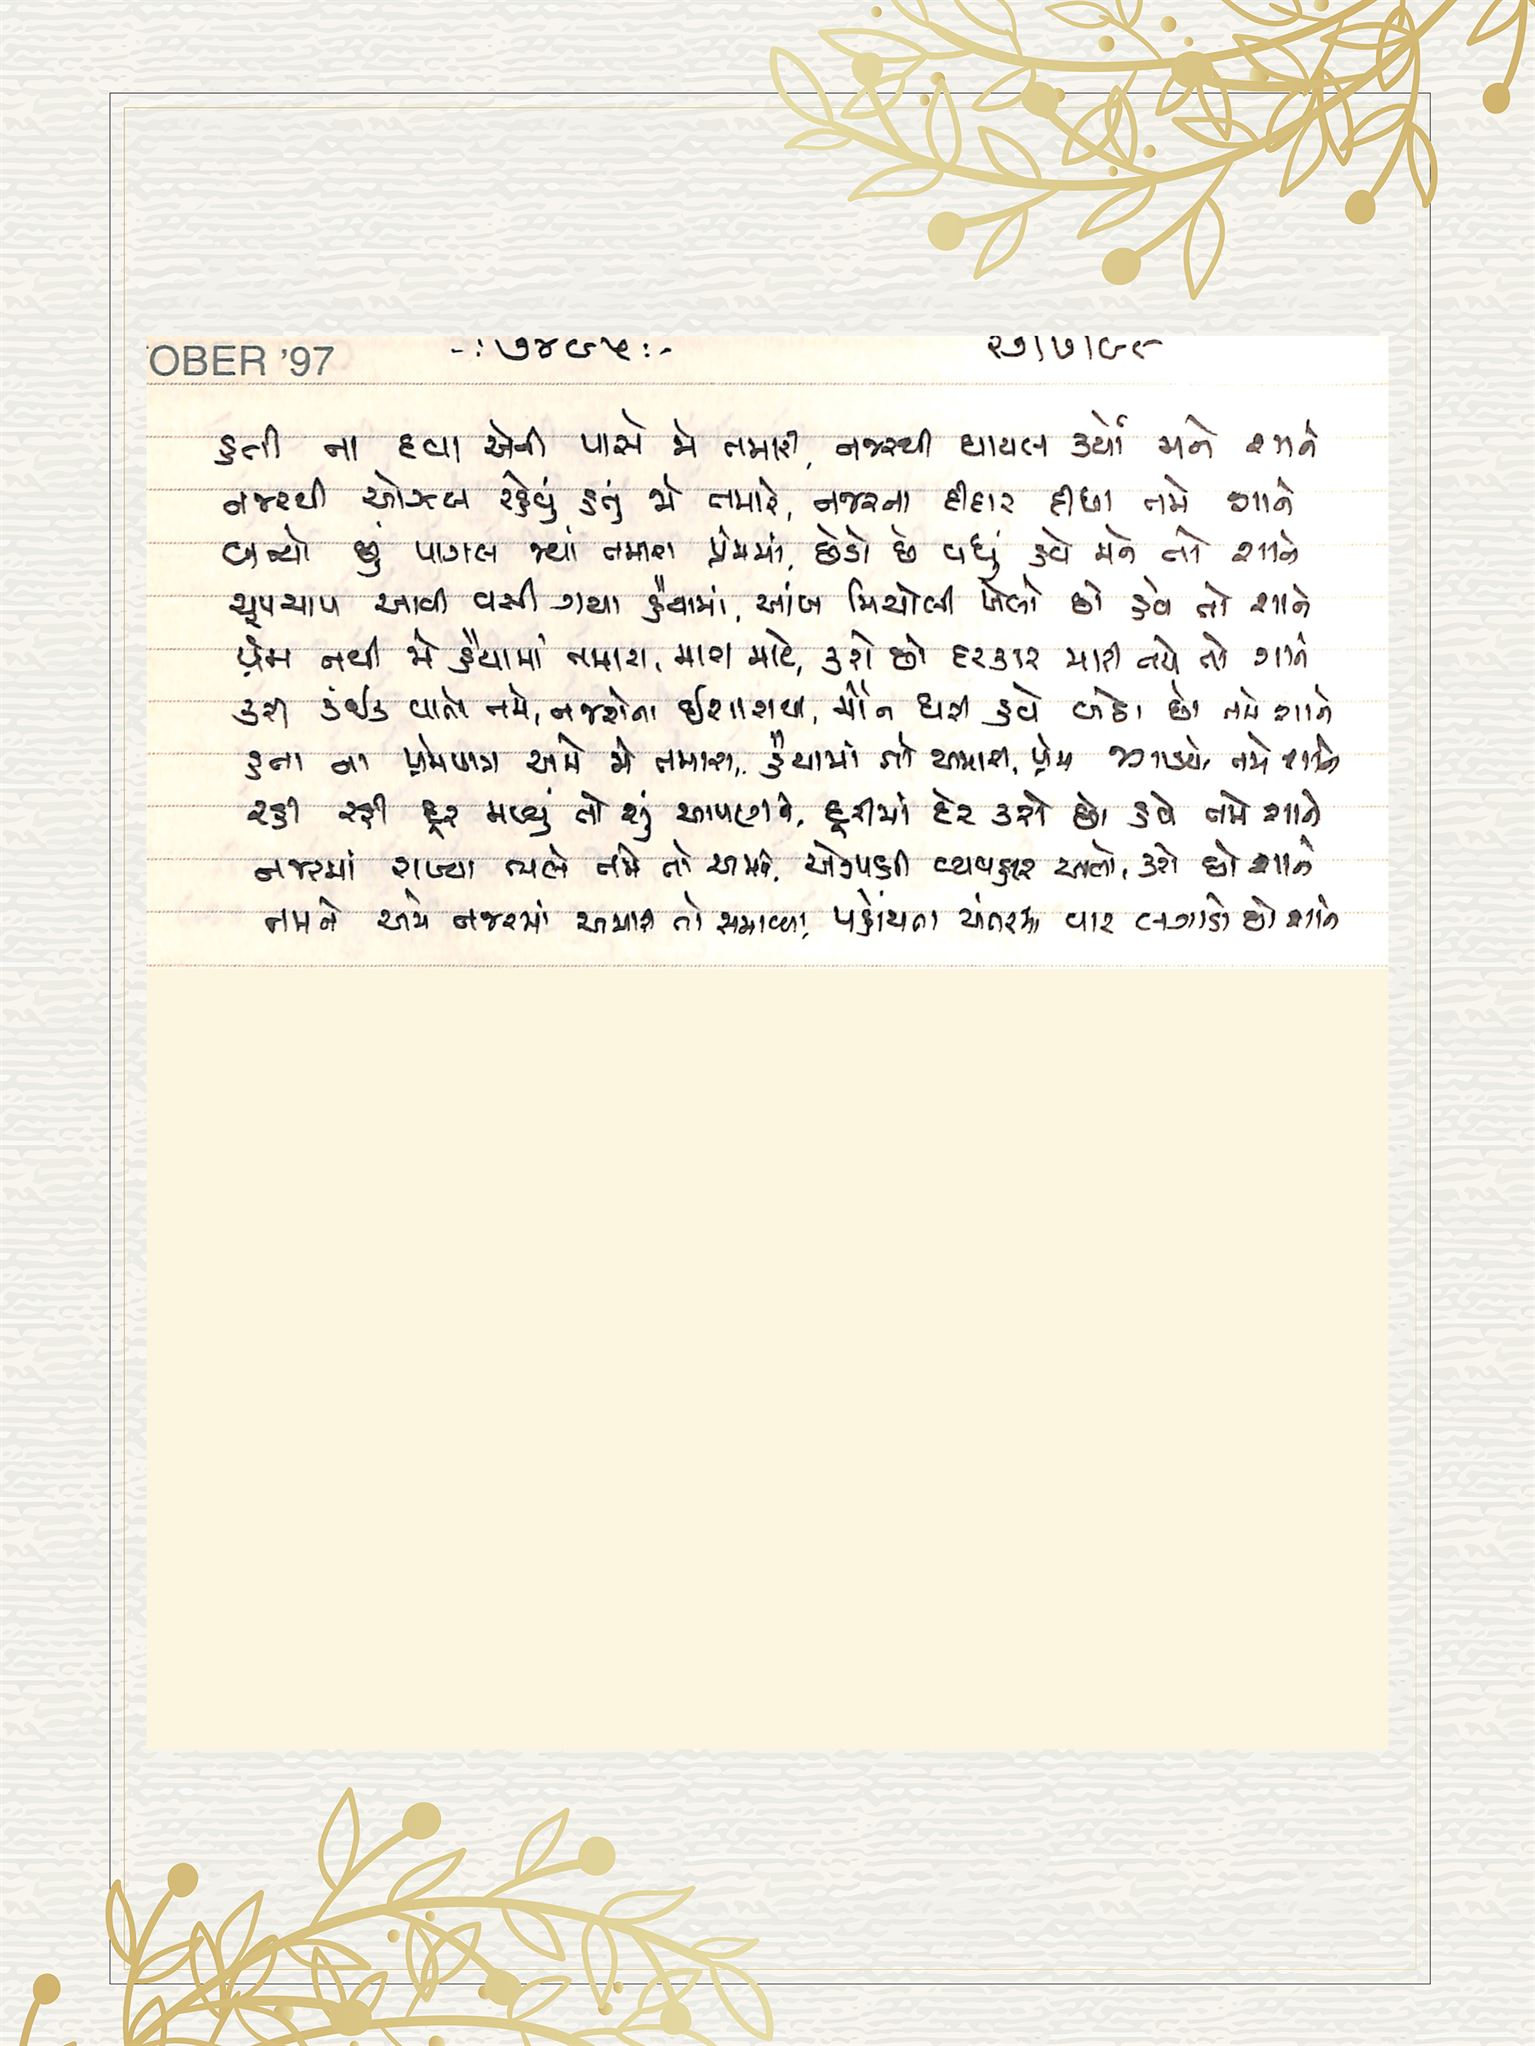 OBER '97 -: ૭૪૯૫ :- ૨૭/૭/૯૮
હતી ના દવા એની પાસે જો તમારી, નજરથી ઘાયલ કર્યો મને શાને
નજરથી ઓઝલ રહેવું હતું જો તમારે, નજરના દીદાર દીધા તમે શાને
બન્યો છું પાગલ જ્યાં તમારા પ્રેમમાં, છેડો છો વધું હવે મને તો શાને
ચૂપચાપ આવી વસી ગયા હૈયામાં, આંખ મિચોલી ખેલો છો હવે તો શાને
પ્રેમ નથી જો હૈયામાં તમારા, મારા માટે, કરો છો દરકાર મારી તમે તો શાને
કરી કંઈક વાતો તમે, નજરોના ઈશારાથી, મૌન ધરી હવે બેઠા છો તમે શાને
હતા ના પ્રેમપાત્ર અમે જો તમારા, હૈયામાં તો અમારા, પ્રેમ જગાડયો તમે શાને
રહી રહી દૂર મળ્યું તો શું આપણને, દૂરીમાં દેર કરો છો હવે તમે શાને
નજરમાં રાખ્યા ભલે તમે તો અમને, એકપક્ષી વ્યવહાર આવો, કરો છો શાને
તમને અમે નજરમાં અમારી તો સમાવ્યા, પહોંચતા અંતરમાં વાર લગાડો છો શાને